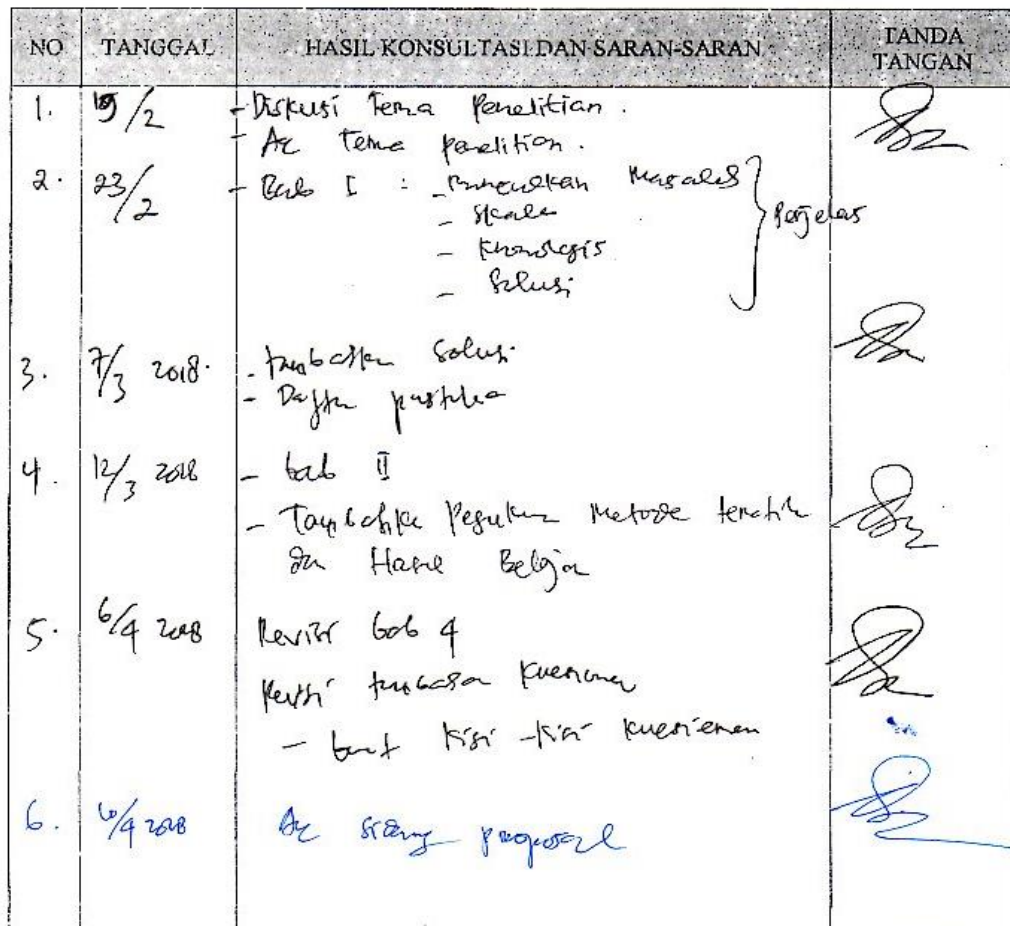 NO TANGGAL HASIL KONSULTASI DAN SARAN-SARAN TANDA TANGAN
1. 19/2 - Diskusi Tema Penelitian.
- Acc Tema penelitian.
2. 23/2 - Bab I : - Masalah
- Skala
- Kronologis
- Solusi
Perjelas
3. 7/3 2018. - tambahkan Solusi
- Daftar pustaka
4. 12/3 2018 - bab II
- Tambahkan Metode tematik
dan Hasil Belajar
5. 6/4 2018 Revisi bab 4
Revisi Kuesioner
- buat Kisi-Kisi kuesioner
6. 6/4 2018 Acc sidang proposal